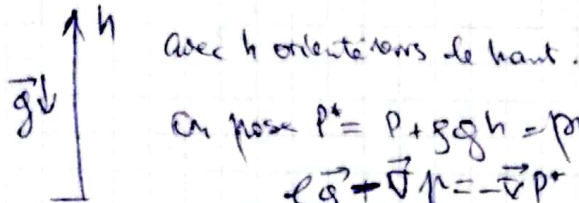 h avec h orienté vers le haut.
g⃗
on pose P* = P + ρgh = p
ρg⃗ - ∇⃗p = -∇⃗P*